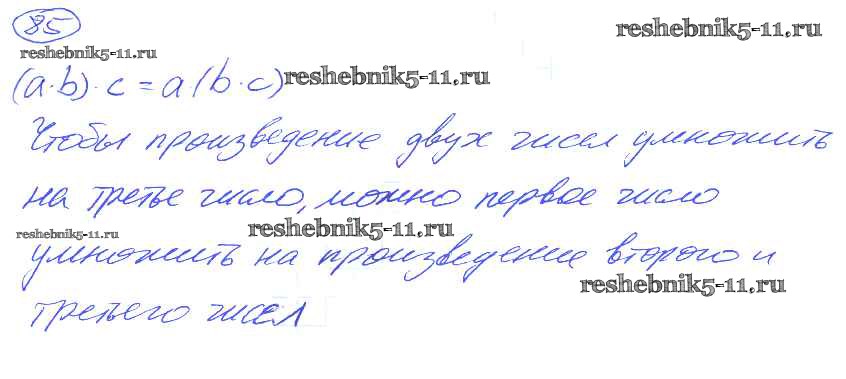 85
reshebnik5-11.ru
reshebnik5-11.ru
(a·b)·c=a(b·c) reshebnik5-11.ru
Чтобы произведение двух чисел умножить
на третье число, можно первое число
reshebnik5-11.ru reshebnik5-11.ru
умножить на произведение второго и
reshebnik5-11.ru
третьего чисел